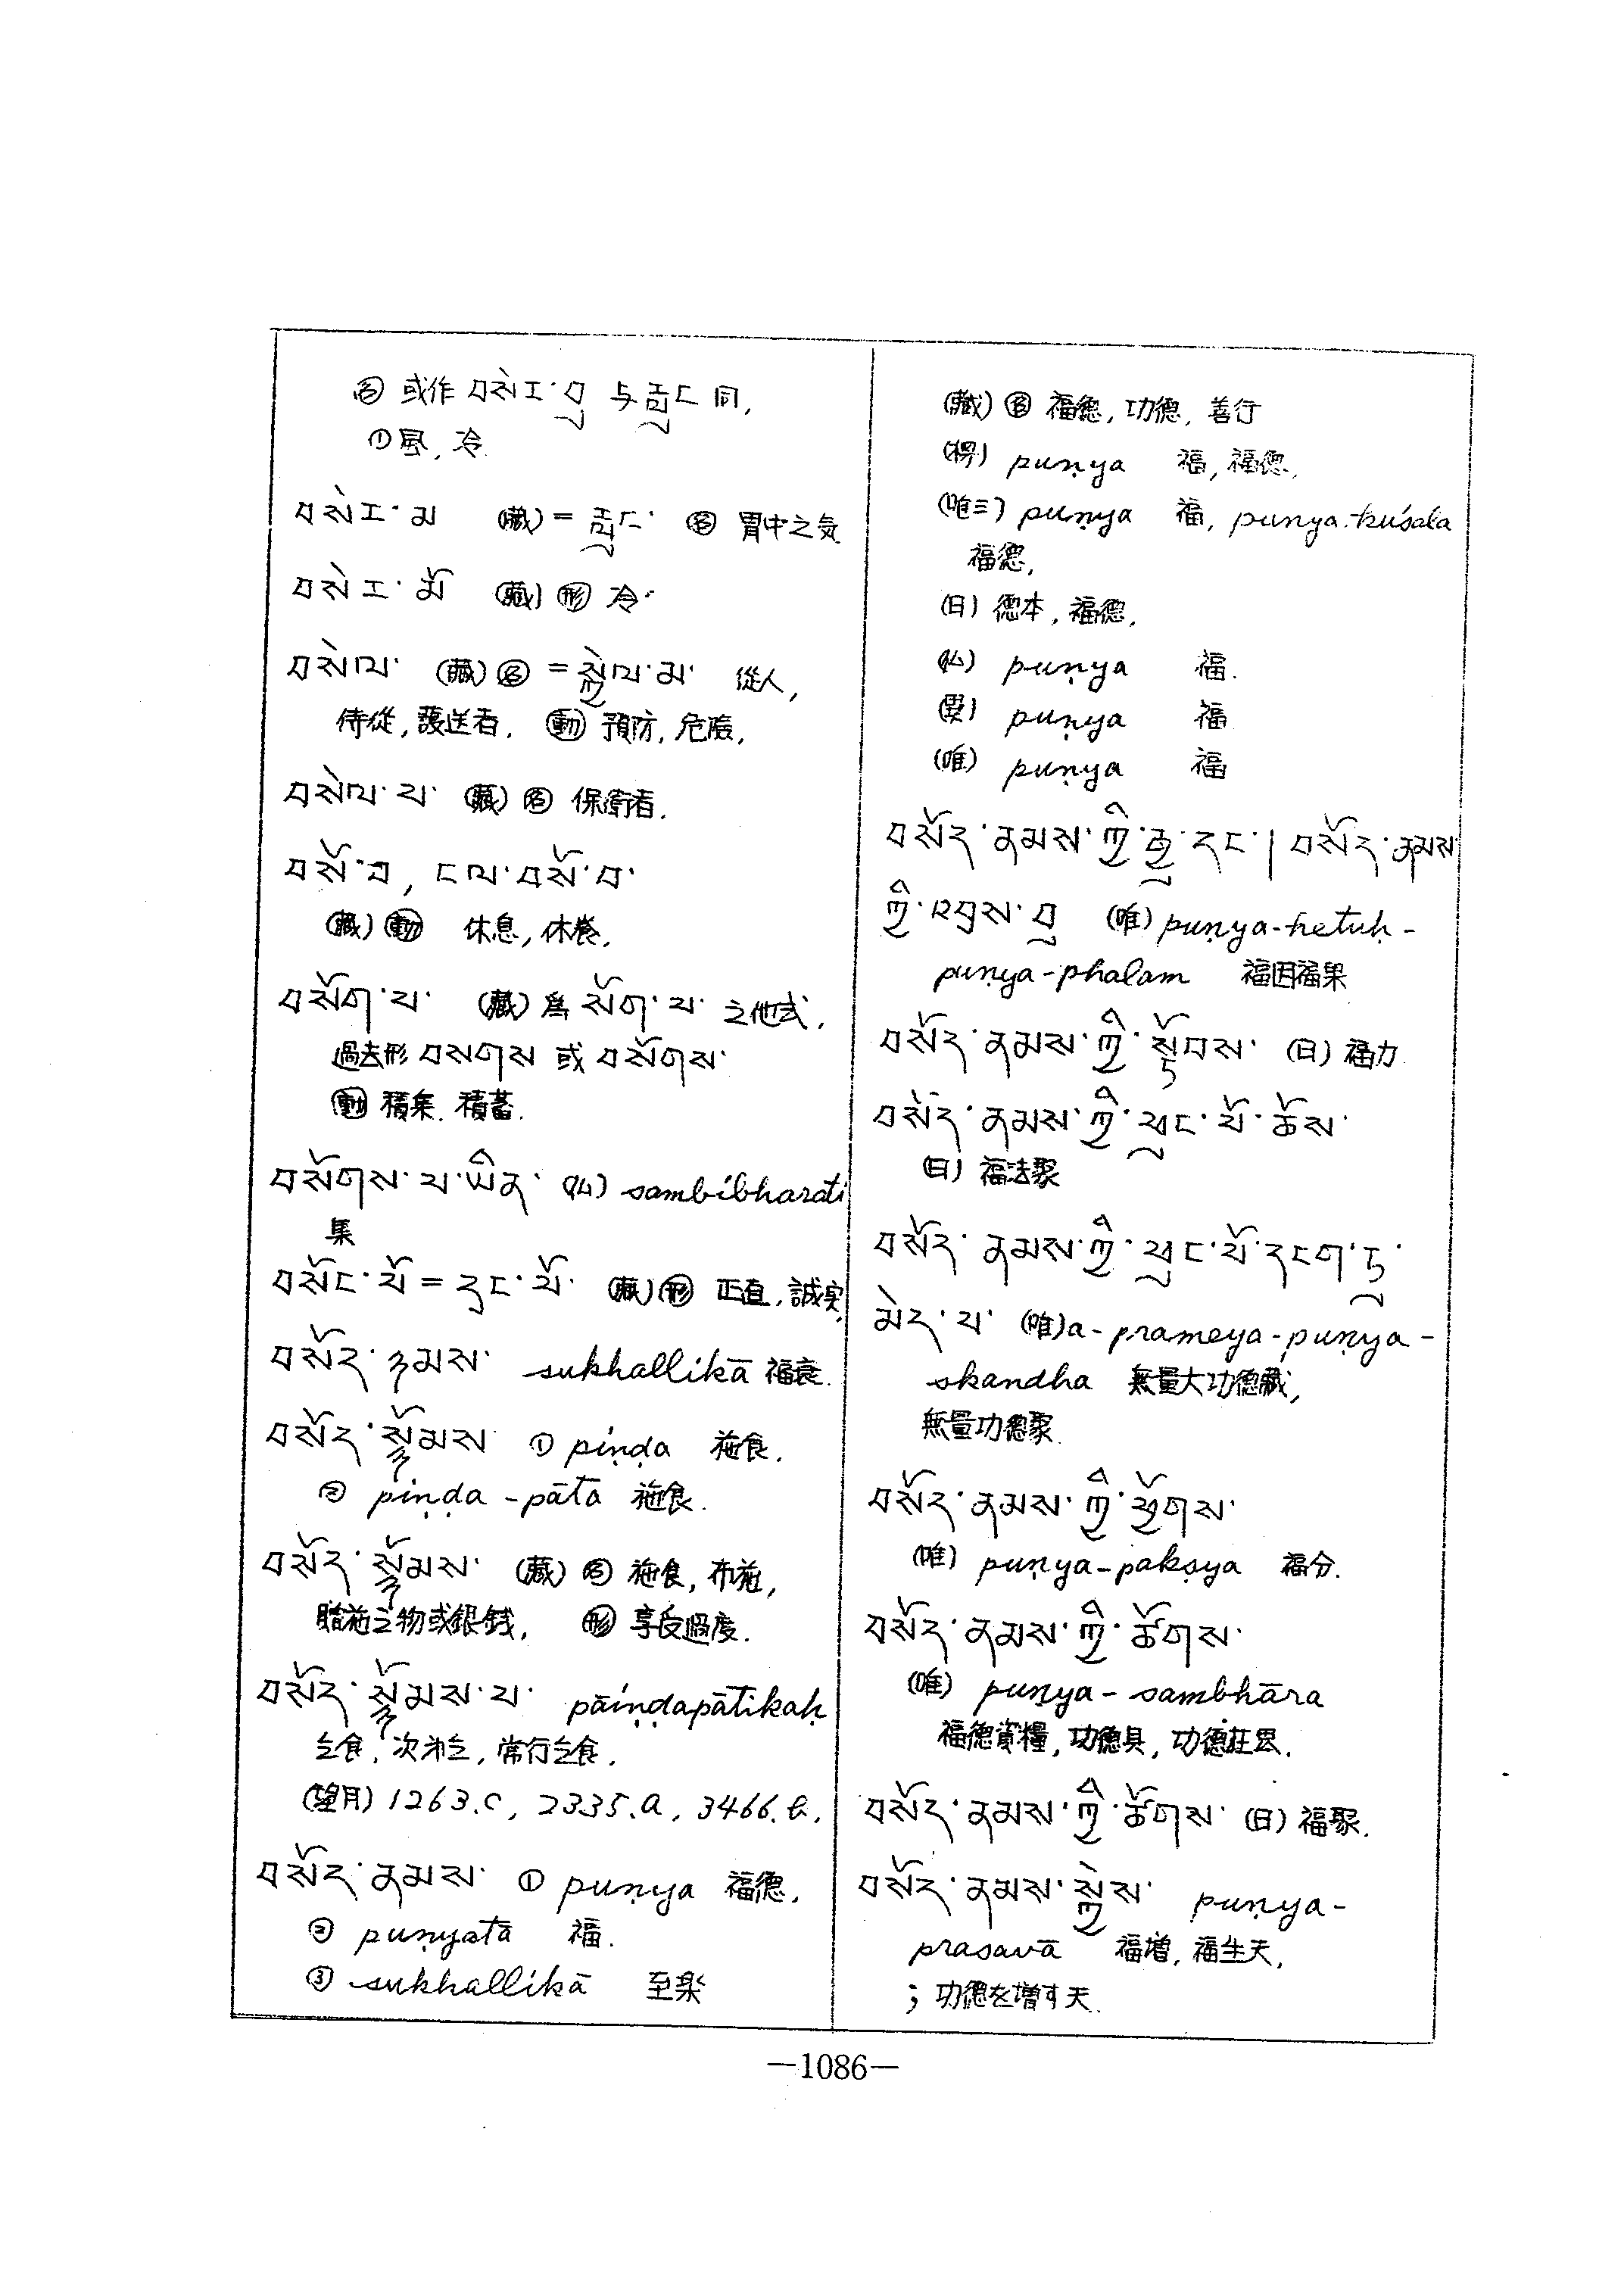 ㊔ 或作 བསེར་བུ 与 རླུང 同,
① 風, 冷.
བསེར་མ (藏) = རླུང་ ㊔ 胃中之気
བསེར་མོ (藏) ㊒ 冷
བསེལ་ (藏) ㊔ = སྐྱེལ་མ་ 從人,
侍從, 護送者. 動 預防, 危險,
བསེལ་པ་ (藏) 名 保衛者.
བསོ་བ, ངལ་བསོ་བ་
(藏) 動 休息, 休養,
བསོག་པ་ (藏) 為 སོག་པ་ 之他式,
過去形 བསགས 或 བསོགས་
動 積集. 積蓄.
བསོགས་པ་ཡིན་ (仏) sambibharati
集
བསོང་པོ = དྲང་པོ་ (藏) 形 正直, 誠実,
བསོད་ཉམས་ sukhallikā 福衰.
བསོད་སྙོམས ① piṇḍa 施食.
② piṇḍa-pāta 施食.
བསོད་སྙོམས་ (藏) 名 施食, 布施,
賭施之物或銀錢, 形 享受過度.
བསོད་སྙོམས་པ་ paiṇḍapātikaḥ
乞食, 次第乞, 常行乞食.
(望月) 1263.c, 2335.a, 3466.b.
བསོད་ནམས་ ① puṇya 福德,
② puṇyatā 福.
③ sukhallikā 至楽
(藏) 名 福德, 功德, 善行
puṇya 福, 福德.
(唯三) puṇya 福, puṇya-kuśala
福德,
(日) 德本, 福德.
(仏) puṇya 福.
puṇya 福
(唯) puṇya 福
བསོད་ནམས་ཀྱི་རྒྱུ་དང་། བསོད་ནམས་
ཀྱི་འབྲས་བུ (唯) puṇya-hetuḥ-
puṇya-phalam 福因福果
བསོད་ནམས་ཀྱི་སྟོབས་ (日) 福力
བསོད་ནམས་ཀྱི་ཕུང་པོ་ཆོས་
(日) 福法聚
བསོད་ནམས་ཀྱི་ཕུང་པོ་དཔག་ཏུ་
མེད་པ་ (唯) a-prameya-puṇya-
skandha 無量大功德藏,
無量功德聚.
བསོད་ནམས་ཀྱི་ཕྱོགས་
(唯) puṇya-pakṣya 福分.
བསོད་ནམས་ཀྱི་ཚོགས་
(唯) puṇya-sambhāra
福德資糧, 功德具, 功德荘嚴.
བསོད་ནམས་ཀྱི་ཚོགས་ (日) 福聚.
བསོད་ནམས་སྐྱེས་ puṇya-
prasavā 福増, 福生天,
; 功德を増す天.
—1086—